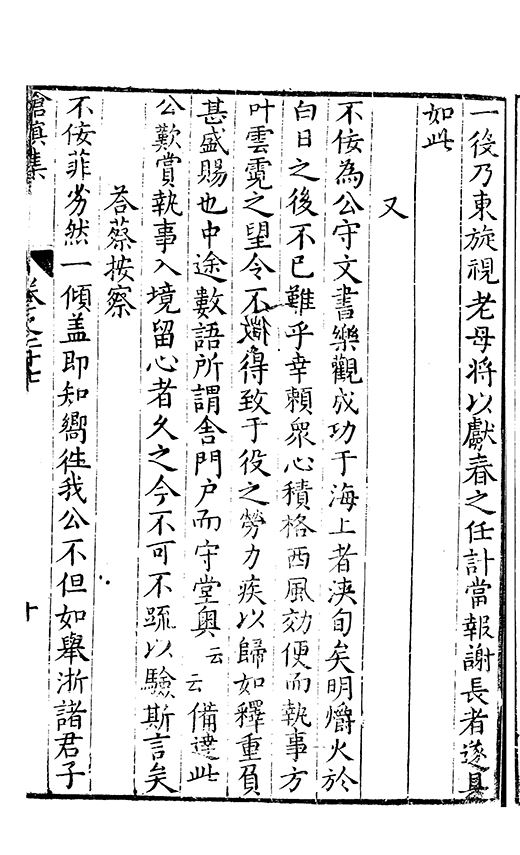 一役乃東旋視老母將以獻春之任計當報謝長者遂具
如此
又
不佞為公守文書樂觀成功于海上者浹旬矣明爝火於
白日之後不已難乎幸賴衆心積格西風効便而執事方
叶雲霓之望令不得致于役之勞力疾以歸如釋重負
甚盛賜也中途數語所謂舍門户而守堂奥云云備達此
公歎賞執事入境留心者久之今不可不䟽以驗斯言矣
荅蔡按察
不佞菲劣然一傾盖即知嚮徃我公不但如舉浙諸君子
滄溟集
卷之二十七
十